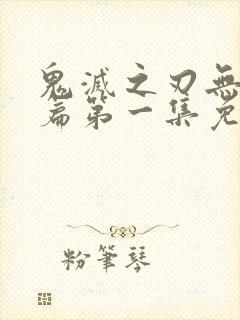 鬼滅之刃無
篇第一集免
粉筆琴